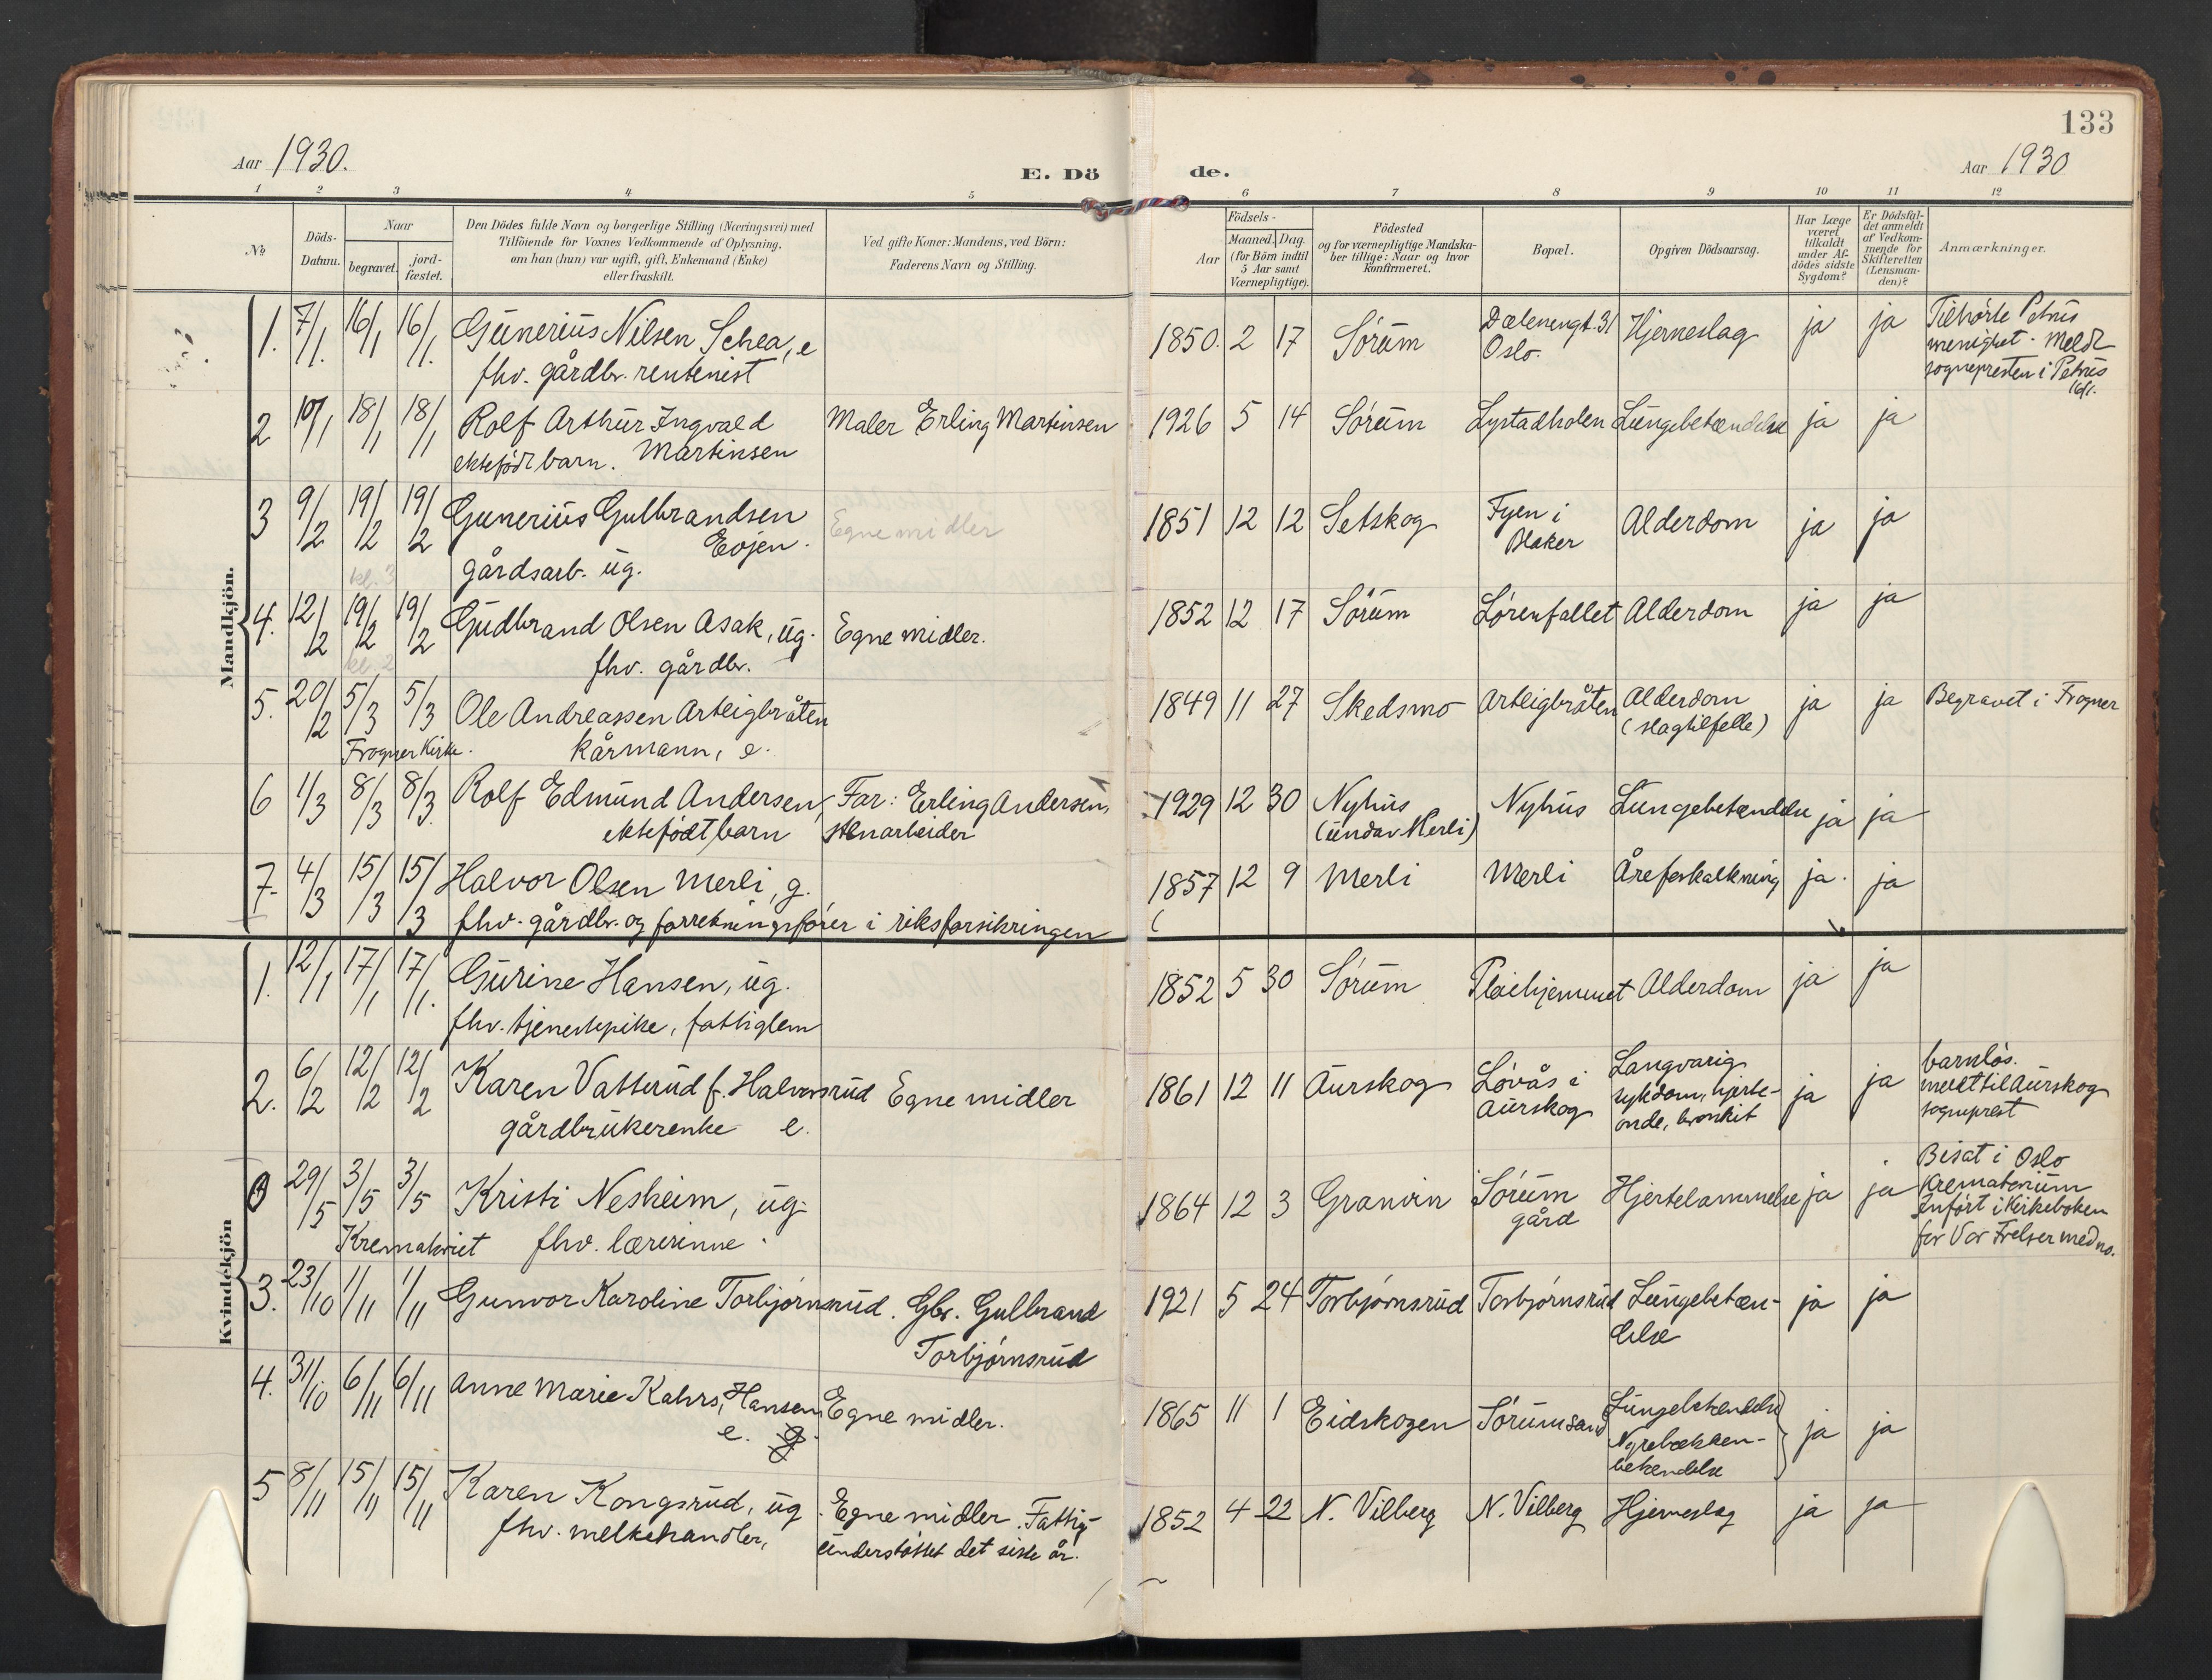 133
Aar 1930.
E. Dö
de.
Aar 1930
1 2 3 4 5 6 7 8 9 10 11 12
No.
Döds-Datum.
Naar
begravet.
jord-fæstet.
Den Dödes fulde Navn og borgerlige Stilling (Næringsvei) med
Tilföiende for Voxnes Vedkommende af Oplysning.
om han (hun) var ugift, gift, Enkemand (Enke)
eller fraskilt.
Ved gifte Koner: Mandens, ved Börn:
Faderens Navn og Stilling.
Födsels-
Aar
Maaned. Dag.
(for Börn indtil
5 Aar samt
Værnepligtige).
Födested
og for værnepligtige Mandska-
ber tillige: Naar og hvor
konfirmeret.
Bopæl.
Opgiven Dödsaarsag.
Har Læge
været
tilkaldt
under Af-
dödes sidste
Sygdom?
Er Dödsfal-
det anmeldt
af Vedkom-
mende for
Skifteretten
(Lensman-
den)?
Anmærkninger.
Mandkjön.
1. 7/1. 16/1 16/1. Gunerius Nilsen Schea, e 1850. 2 17 Sørum Dælenengt. 31 Hjerneslag ja ja Tilhørte Petrus
fhv. gårdbr. rentenist Oslo. menighet. Meldt
sognepresten i Petrus
16/1.
2 10/1 18/1 18/1 Rolf Arthur Ingvald Maler Erling Martinsen 1926 5 14 Sørum Lystadholen Lungebetændelse ja ja
ektefødt barn. Martinsen
3 9/2 19/2 19/2 Gunerius Gulbrandsen Egne midler 1851 12 12 Setskog Fyen i Alderdom ja ja
Evjen. Blaker
gårdsarb. ug.
kl. 3
4. 12/2 19/2 19/2 Gudbrand Olsen Asak, ug. Egne midler. 1852 12 17 Sørum Lørenfallet Alderdom ja ja
kl. 2 fhv. gårdbr.
5. 20/2 5/3 5/3 Ole Andreassen Arteigbråten 1849 11 27 Skedsmo Arteigbråten Alderdom ja ja Begravet i Frogner
Frogner Kirke. kårmann, e. (slagtilfelle)
6 1/3 8/3 8/3. Rolf Edmund Andersen, Far: Erling Andersen, 1929 12 30 Nyhus Nyhus Lungebetændelse ja ja
ektefødt barn stenarbeider (undav Merli)
7. 4/3 15/3 15/3 Halvor Olsen Merli, g. 1857 12 9 Merli Merli Åreforkalkning ja. ja
fhv. gårdbr. og forretningsfører i riksforsikringen
Kvindekjön
1. 12/1 17/1 17/1. Gurine Hansen, ug. 1852 5 30 Sørum Pleiehjemmet Alderdom ja ja
fhv. tjenestepike, fattiglem
2. 6/2 12/2 12/2 Karen Vatterud f. Halvorsrud Egne midler 1861 12 11 Aurskog Løvås i Langvarig ja ja barnløs.
gårdbrukerenke e. Aurskog sykdom, hjerte- meldt til Aurskog
onde, bronkit sogneprest
29/5 3/5 3/5 Kristi Nesheim, ug. 1864 12 3 Granvin Sørum Hjertelammelse ja ja Bisat i Oslo
Krematoriet fhv. lærerinne gård krematorium
Innført i Kirkeboken
for Vor Frelser med no.
3. 23/10 1/11 1/11 Gunvor Karoline Torbjørnsrud. Gbr. Gulbrand 1921 5 24 Torbjørnsrud Torbjørnsrud Lungebetæn- ja ja
Torbjørnsrud delse
4. 31/10 6/11 6/11 Anne Marie Kahrs, Hansen, Egne midler. 1865 11 1 Eidskogen Sørumsand Lungebetændelse ja ja
e. g. Nyrebækken-
betendelse
5 8/11 15/11 15/11 Karen Kongsrud, ug. Egne midler. Fattig- 1852 4 22 N. Vilberg N. Vilberg Hjerneslag ja ja
fhv. melkehandler, understøttet det siste år.